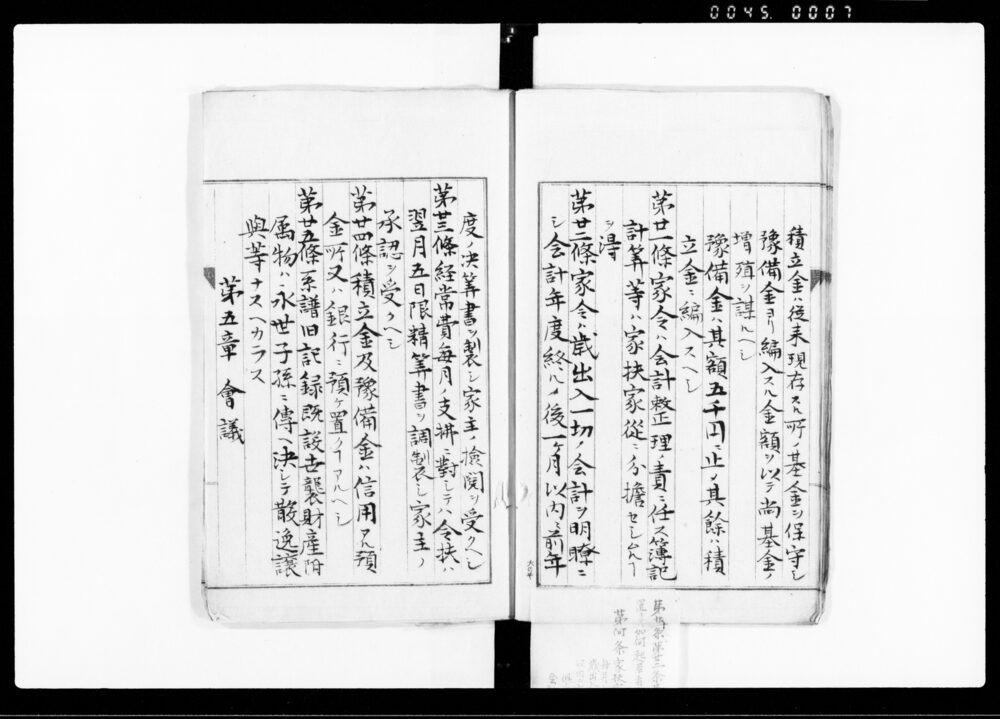 0045. 0007
積立金ハ従来現存スル所ノ基金ヲ保守シ
豫備金ヨリ編入スル金額ヲ以テ尚基金ノ
増殖ヲ謀ルヘシ
豫備金ハ其額五千円ニ止メ其餘ハ積
立金ニ編入スヘシ
第廿一條家令ハ会計整理ノ責ニ任ス簿記
計算等ハ家扶家従ニ分擔セシムルヿ
ヲ得
第廿二條家令ハ歳出入一切ノ会計ヲ明瞭ニ
シ会計年度終ルノ後一ケ月以内ニ前年
度ノ决算書ヲ製シ家主ノ撿閲ヲ受クヘシ
第廿三條経常費毎月ノ支拂ニ對シテハ令扶ハ
翌月五日限精算書ヲ調製シ家主ノ
承認ヲ受クヘシ
第廿四條積立金及豫備金ハ信用アル預
金所又ハ銀行ニ預ケ置クヿアルヘシ
第廿五條系譜旧記録既設世襲財産附
属物ハ永世子孫ニ傳ヘ决シテ散逸譲
與等ナスヘカラス
第五章 會議